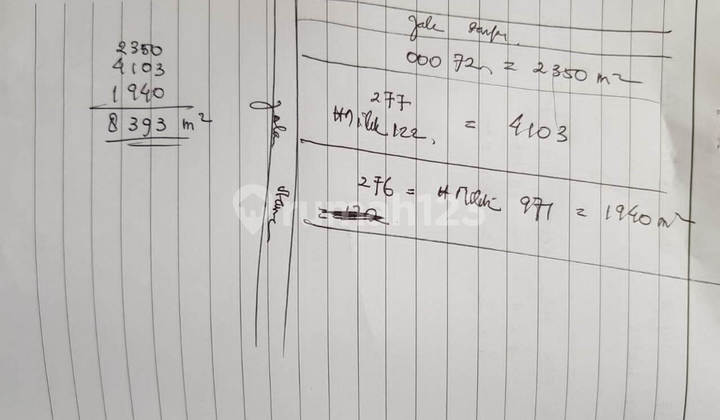 2350
4103
1940
8393 m²
Jale
000 72 = 2350 m²
277
HMilik 122, = 4103
276 = HMilik 971 = 1940 m²
rumah123